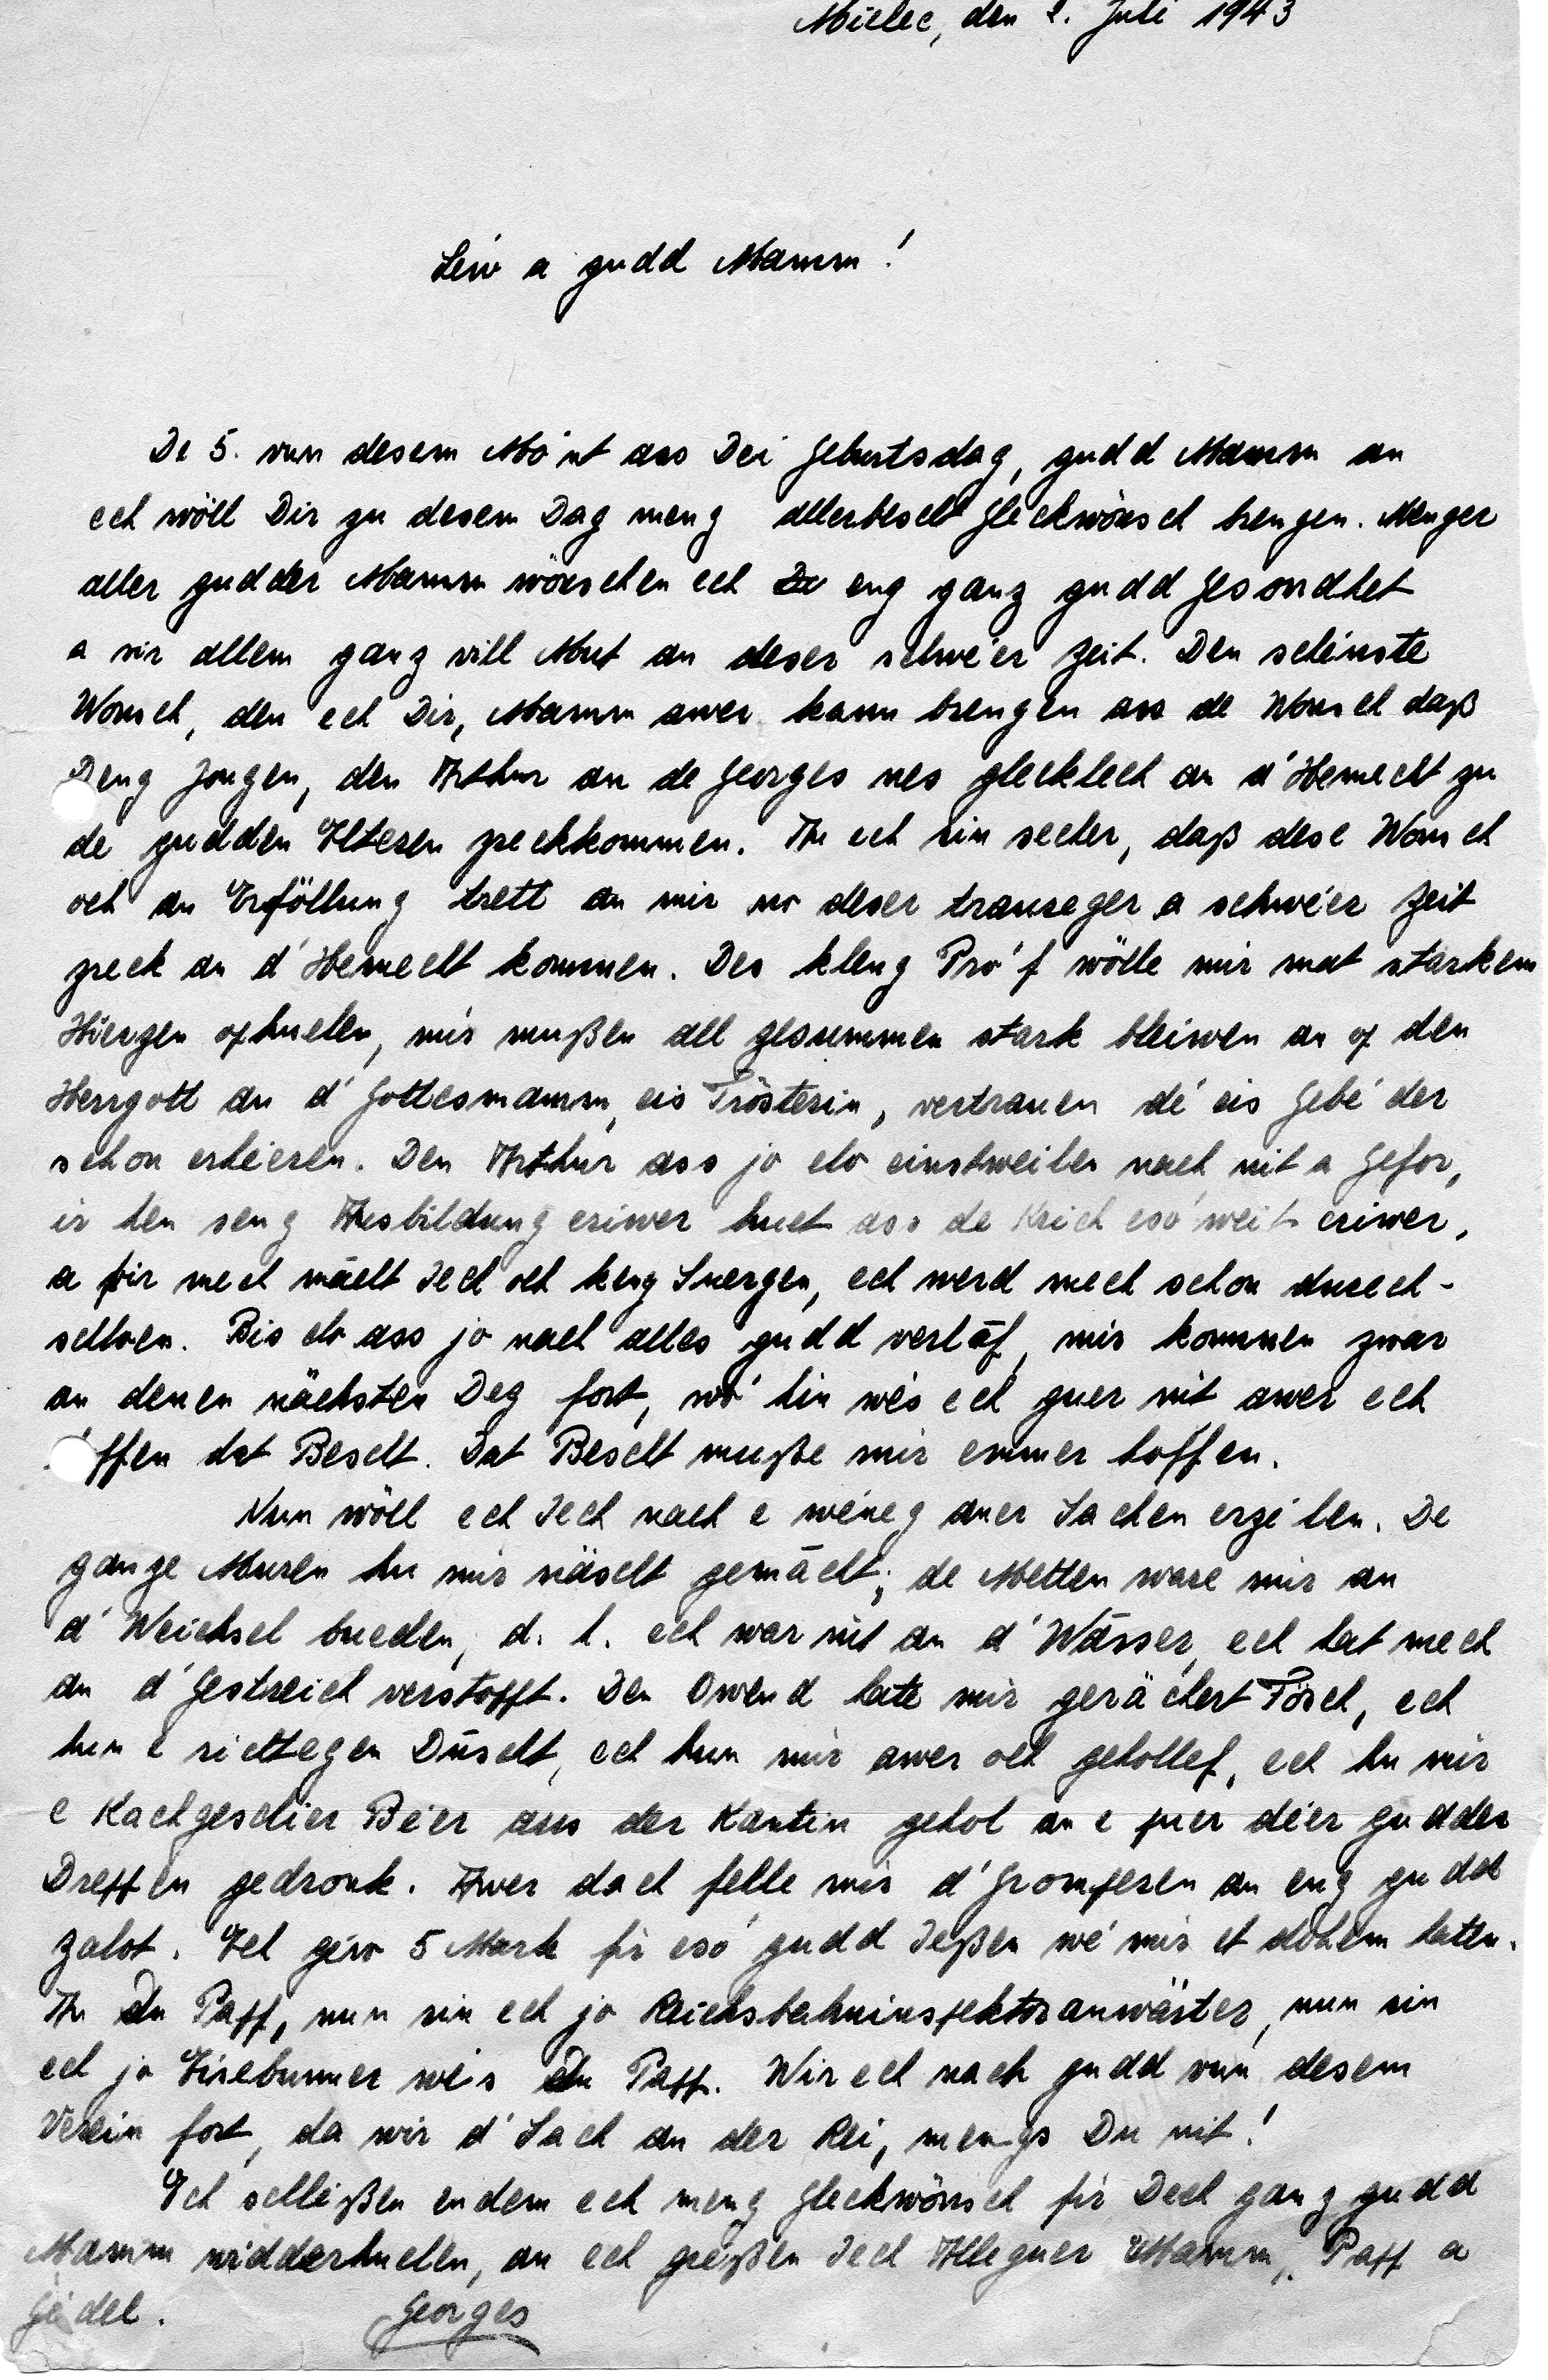 Mielec, den 2. Juli 1943
Léiw a gudd Mamm!
De 5. vun desem Mo'nt ass Dei Geburtsdag, gudd Mamm an
ech wöll Dir zu desem Dag meng allerbescht Gleckwönsch brengen. Menger
aller gudder Mamm wönschen ech eng ganz gudd Gesondhet
a vir allem ganz vill Mut an deser schwe'er Zeit. Den schéinste
Wonsch, den ech Dir, Mamm awer kann brengen ass de Wonsch daß
Deng Jongen, den Arthur an de Georges nes glecklech an d'Hemecht zu
de gudden Elteren zreckkommen. An ech sin secher, daß dese Wonsch
och an Erföllung trett an mir no deser traureger a schwe'er Zeit
zreck an d'Hemecht kommen. Des kleng Pro'f wölle mir mat starkem
Hierzen ophuelen, mir mußen all zesummen stark bleiwen an op den
Herrgott an d'Gottesmamm, eis Trösterin, vertrauen dé eis Gebe'der
schon erhéieren. Den Arthur ass jo elo einstweilen nach nit a Gefor,
ir hen seng Ausbildung eriwer huet ass de Krich eso' weit eriwer,
a fir mech mächt Iech och keng Suergen, ech werd mech schon durech-
schloen. Bis elo ass jo nach alles gudd verlāf, mir kommen zwar
an denen nächsten Deg fort, wo' hin wés ech guer nit awer ech
offen dat Bescht. Dat Bescht muße mir emmer hoffen.
Nun wöll ech Iech nach e wéneg aner Sachen erzé'len. De
ganze Muren hu mir näscht gemācht; de Metten ware mir an
d'Weichsel bueden, d. h. ech war nit an d'Wāsser, ech hat mech
an d'Gestreich verstoppt. Den Owend hate mir gerächert Fösch, ech
hun e richtegen Dūscht, ech hun mir awer och gehollef, ech hu mir
e Kachgeschier Béier aus der Kantin geholt an e puer déier gudder
Dreppen gedronk. Awer dach felle mir d'Gromperen an eng gudd
Zalot. Ech géiw 5 Mark fir eso' gudd Ießen wé mir et doheem haten.
An du Papp, nun sin ech jo Reichsbahninspektoranwärter, nun sin
ech jo Eisebunner wé's du Papp. Wir ech nach gudd vun desem
Verein fort, da wir d'Sach an der Rei, mengs Du nit!
Ech schléißen endem ech meng Gleckwönsch fir Dech ganz gudd
Mamm widderhuelen, an ech gréßen Iech Alleguer Mamm, Papp a
Gédel.
Georges